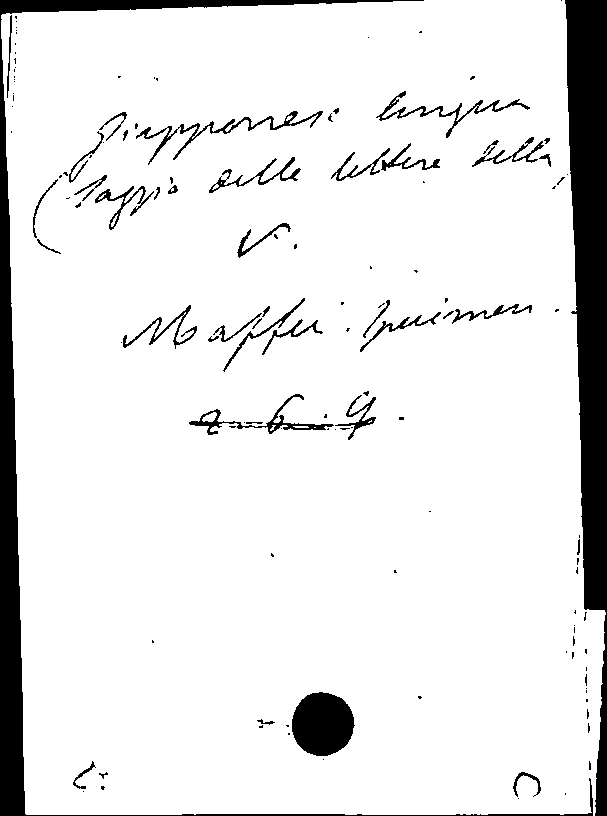 Giapponese lingua
(Saggio delle lettere della)
V.
Maffei. Specimen.
2. 6. 9.